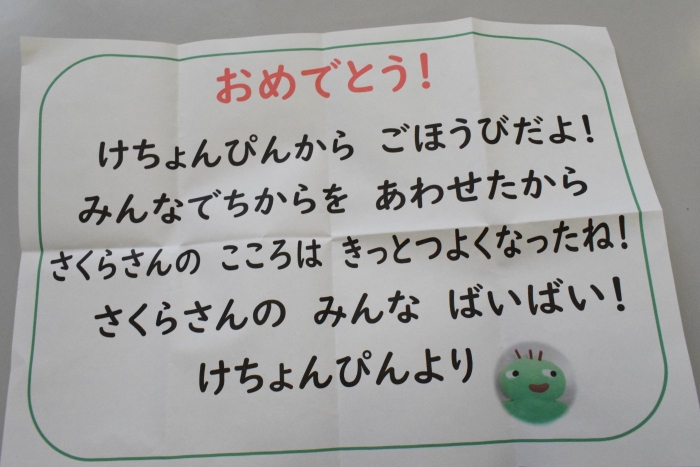 おめでとう!
けちょんぴんから ごほうびだよ!
みんなでちからを あわせたから
さくらさんの こころは きっとつよくなったね!
さくらさんの みんな ばいばい!
けちょんぴんより